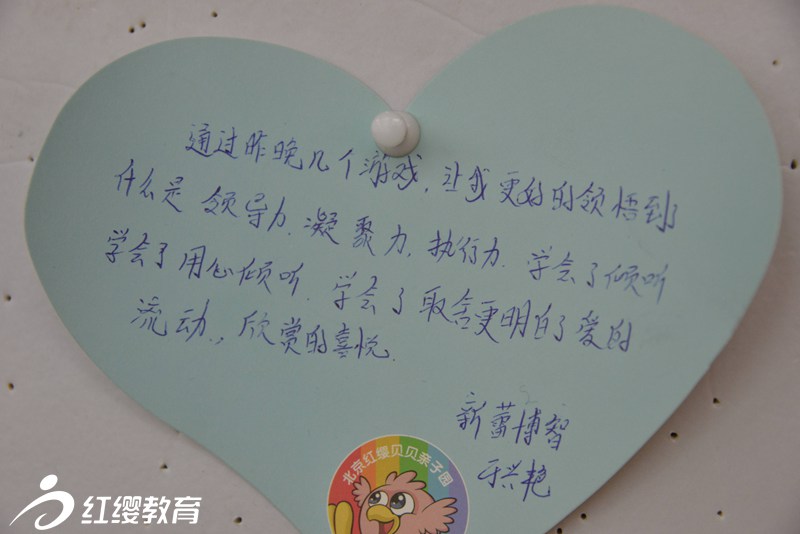 通过昨晚几个游戏,让我更好的领悟到了
什么是领导力.凝聚力.执行力.学会了倾听
学会了用心倾听.学会了取舍更明白了爱的
流动.,欣赏的喜悦.
新蕾博智
于兴艳
北京红缨贝贝亲子园
红缨教育